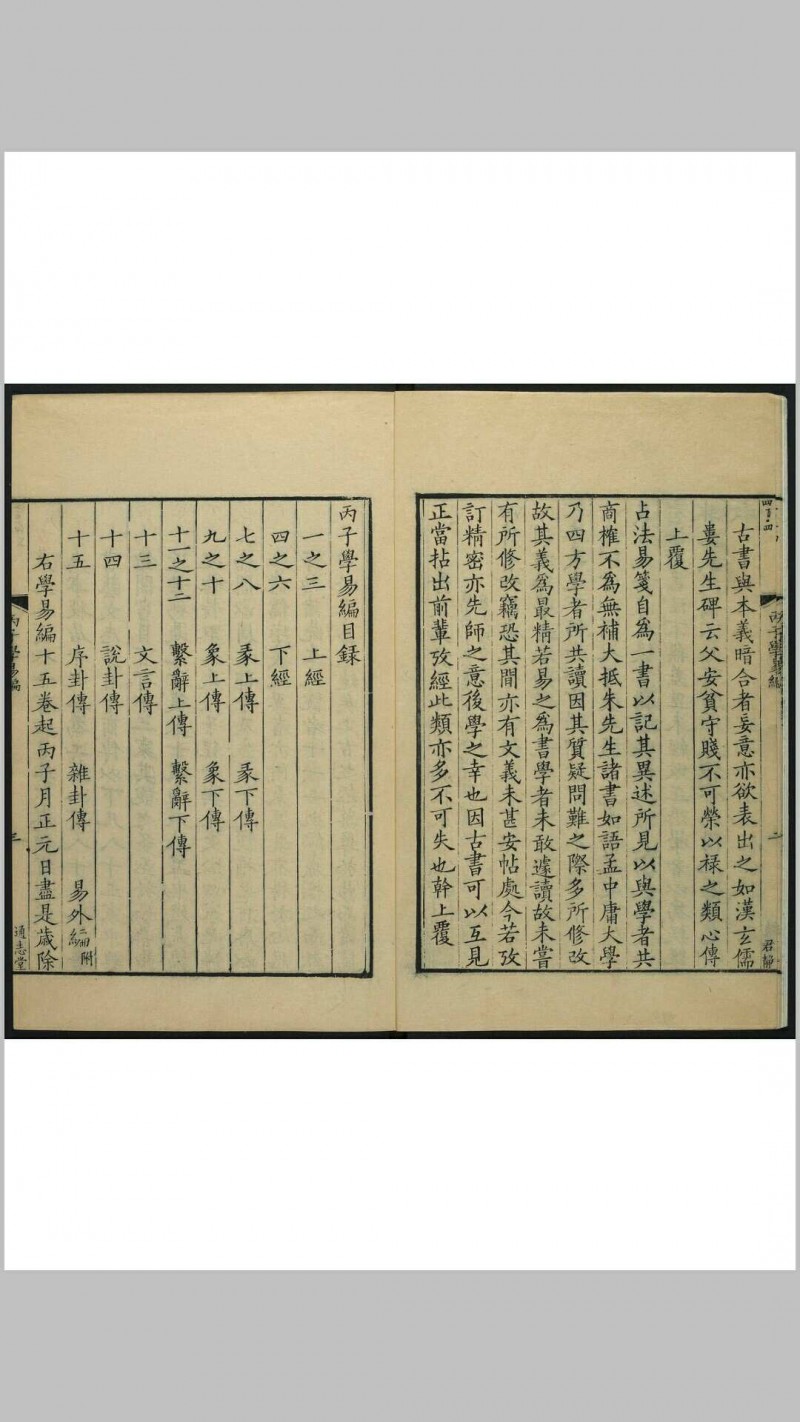 古書與本義暗合者妄意亦欲表出之如漢玄儒
婁先生碑云父安貧守賤不可榮以祿之類心傳
上覆
占法易箋自為一書以記其異述所見以與學者共
商榷不為無補大抵朱先生諸書如語孟中庸大學
乃四方學者所共讀因其質疑問難之際多所修改
故其義為最精若易之為書學者未敢遽讀故未嘗
有所修改竊恐其間亦有文義未甚安帖處今若攷
訂精密亦先師之意後學之幸也因古書可以互見
正當拈出前輩攷經此類亦多不可失也幹上覆
丙子學易編
二
君靜
丙子學易編目録
一之三 上經
四之六 下經
七之八 彖上傳 彖下傳
九之十 象上傳 象下傳
十一之十二 繫辭上傳 繫辭下傳
十三 文言傳
十四 說卦傳
十五 序卦傳 雜卦傳 易外編附
右學易編十五卷起丙子月正元日盡是歲除
丙子學易編
三
通志堂